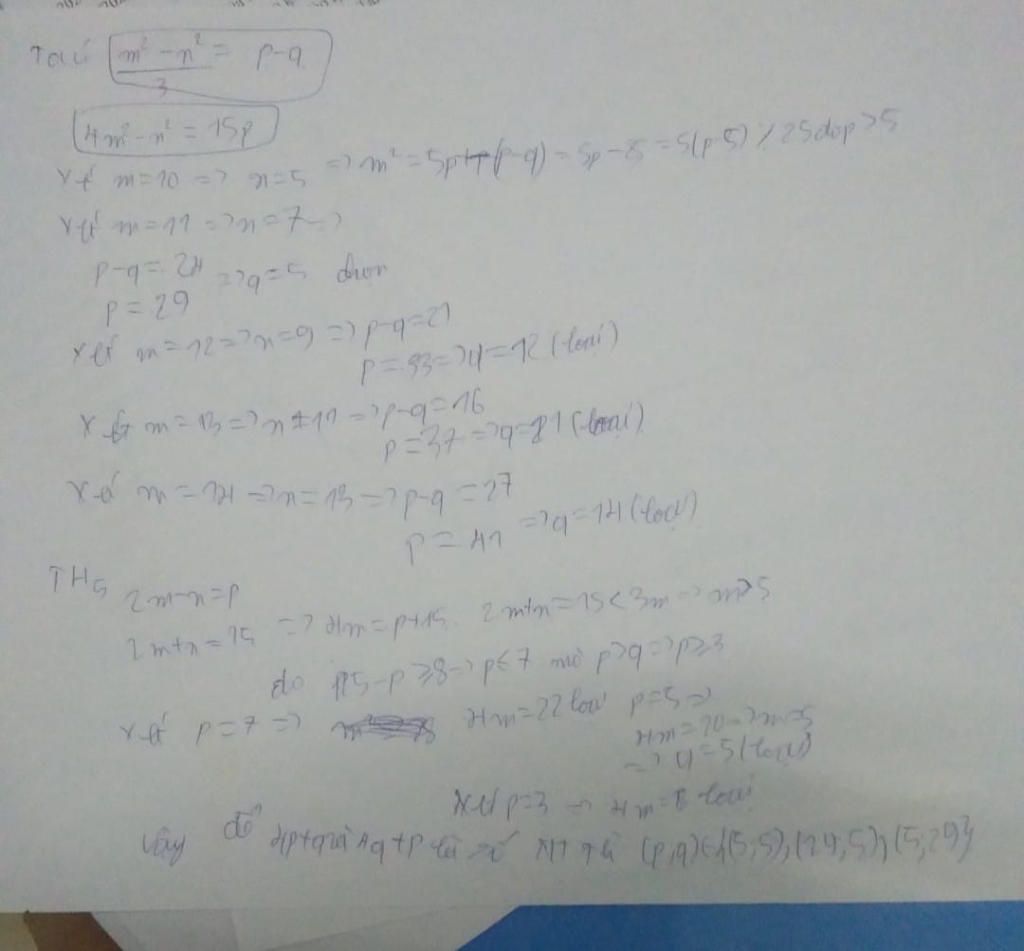 Ta có m² - n² / 3 = p-q
4m² - n² = 15p
Xét m=10 => n=5 => m² = 5p+(p-q) = 5p-25 = 5(p-5) 25 do p>5
Xét m=11 => n=7 =>
p-q=24 => q=5 chọn
p=29
Xét m=12 => n=9 => p-q=21
p=33 => q=12 (loại)
Xét m=13 => n=11 => p-q=16
p=37 => q=21 (loại)
Xét m=14 => n=13 => p-q=27
p=41 => q=14 (loại)
TH5 2m-n=p
2m+n=15 => 4m=p+15. 2m+n=15<3m => m>5
do 15-p≥8 => p≤7 mà p>q => p≥3
Xét p=7 => 4m=22 loại p=5 =>
4m=20 => m=5
=> q=5 (loại)
Xét p=3 => 4m=8 loại
Vậy để 4p+q và 4q+p là số thì (p,q)∈{(5,5),(29,5),(5,29)}